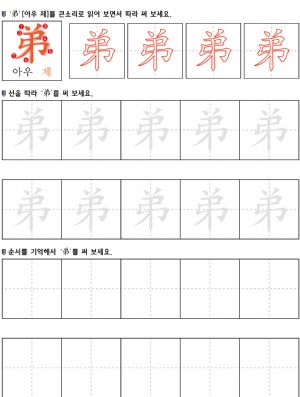 '弟'[아우 제]를 큰소리로 읽어 보면서 따라 써 보세요.
弟 弟 弟 弟 弟
아우 제
선을 따라 '弟'를 써 보세요.
弟 弟 弟 弟 弟
弟 弟 弟 弟 弟
순서를 기억해서 '弟'를 써 보세요.